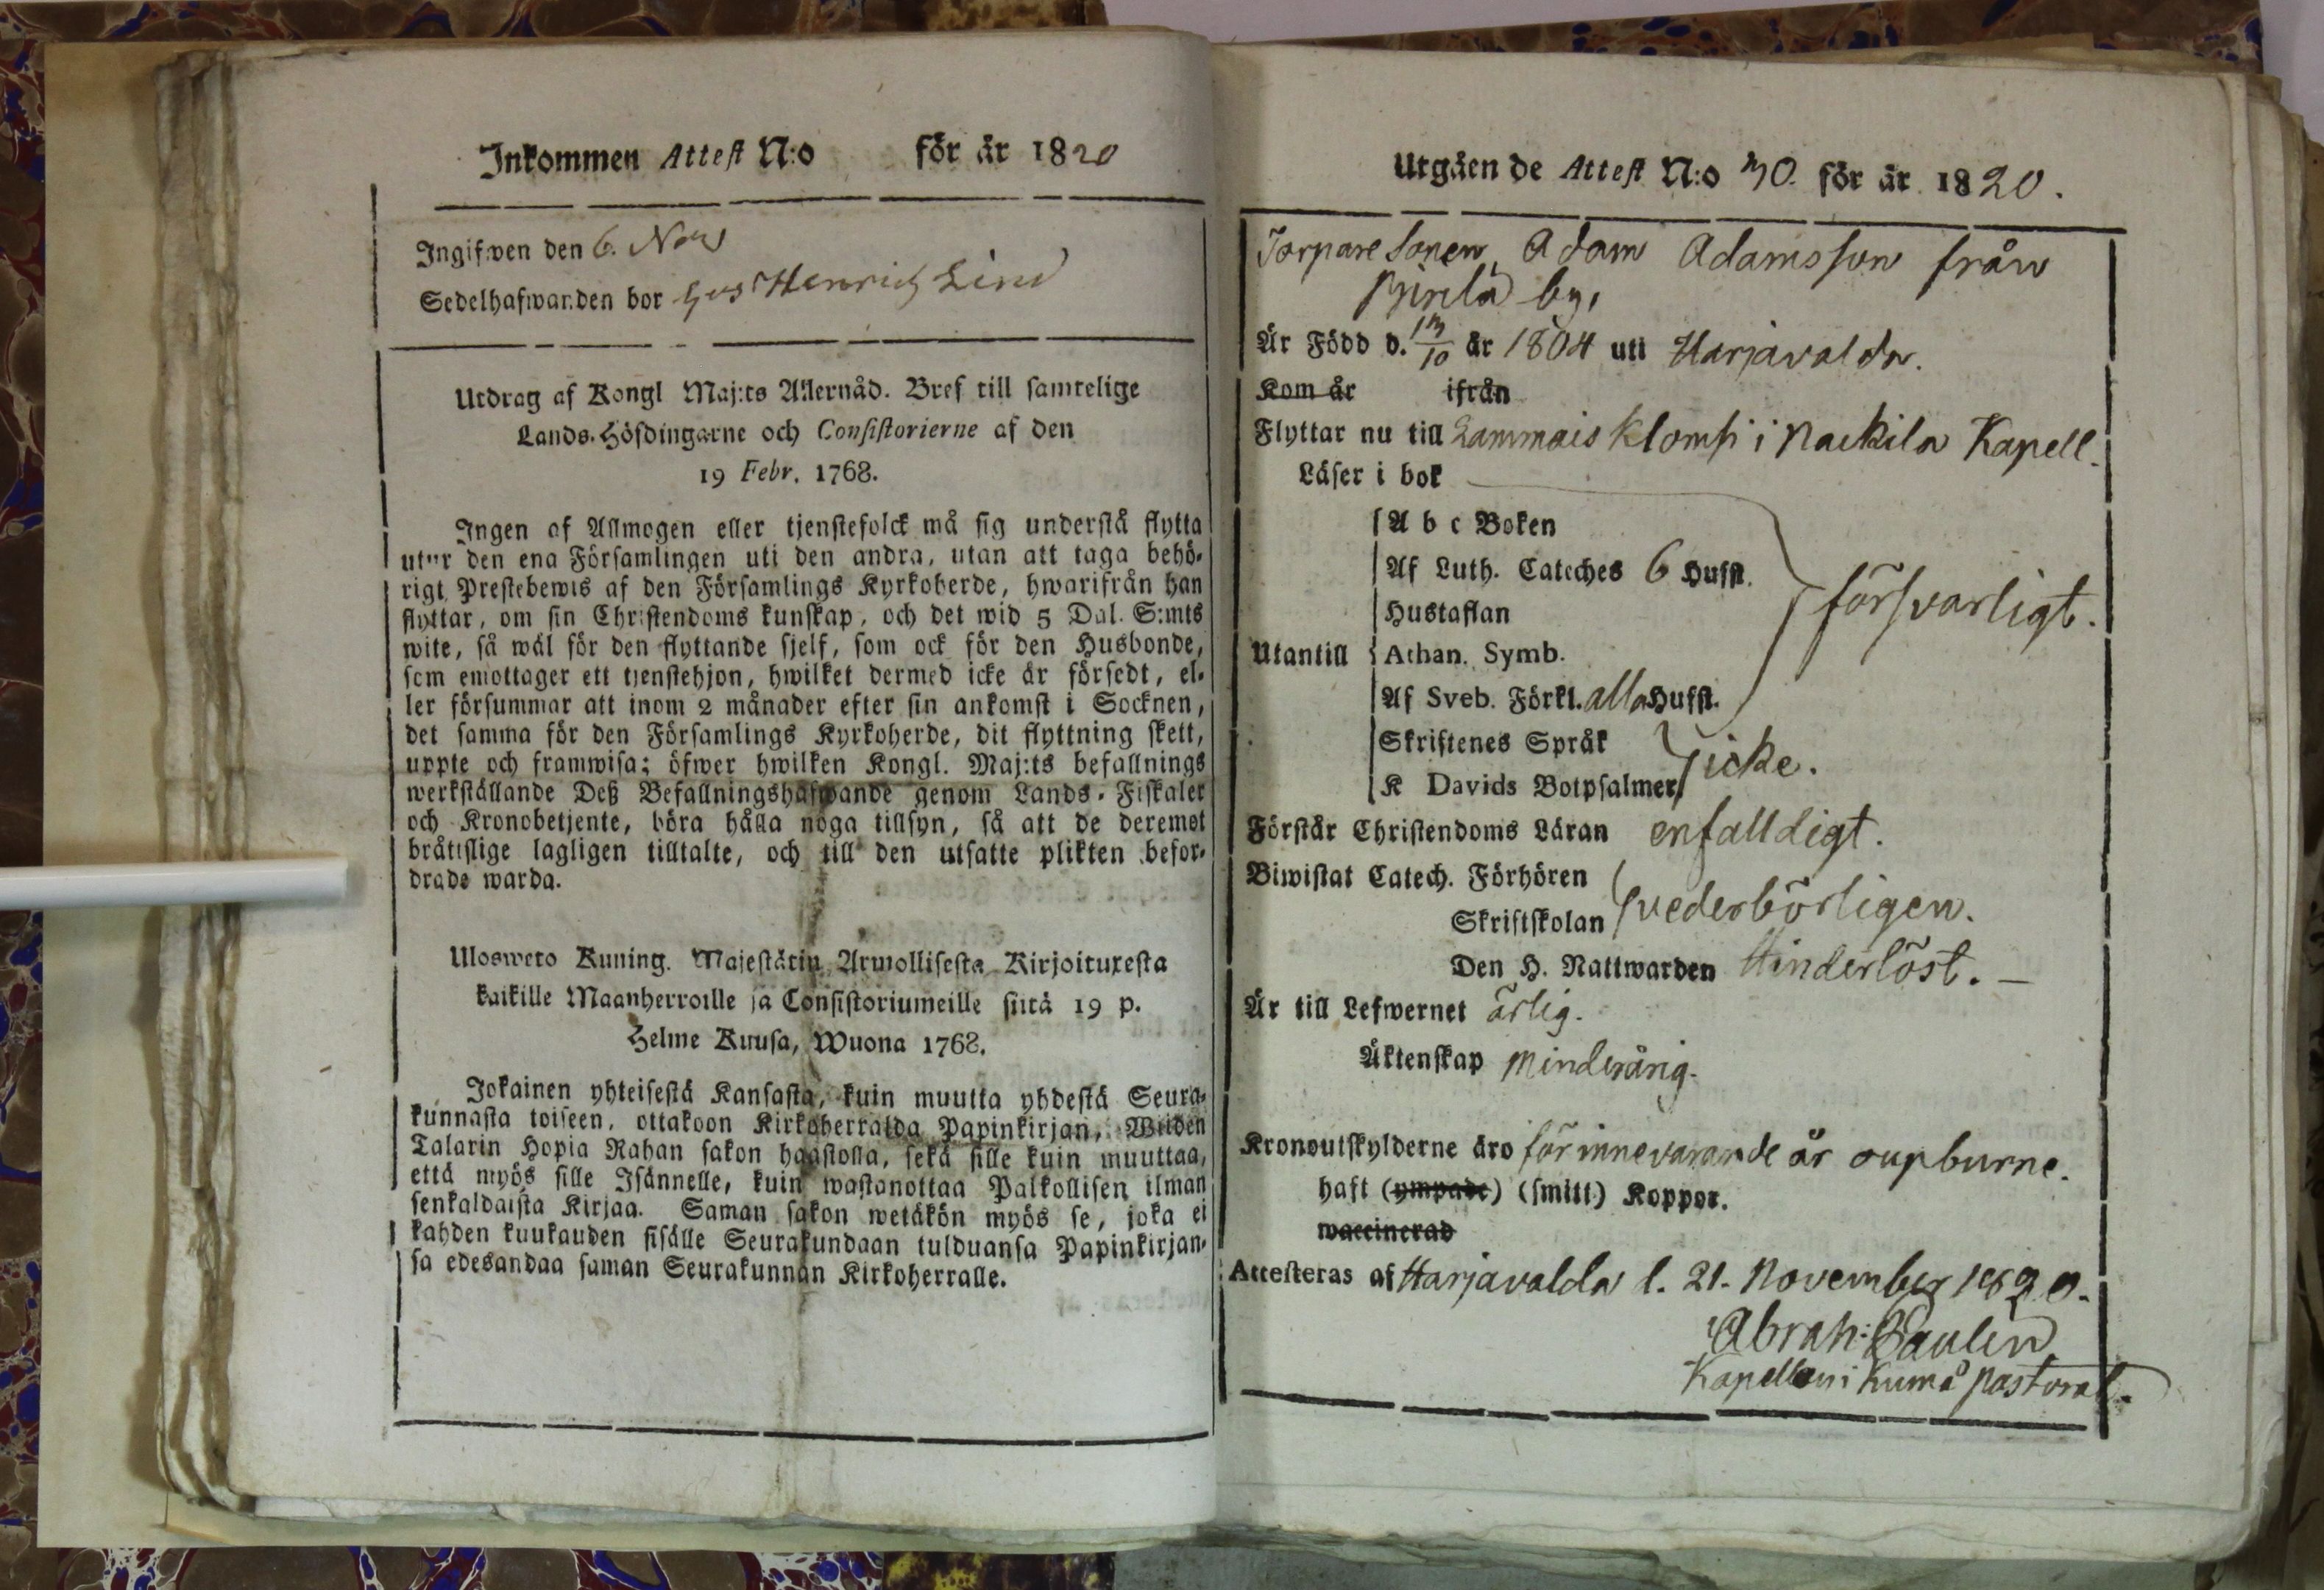 Inkommen Attest N:o för år 1820
Ingifwen den 6. Nov
Sedelhafwanden bor hos Henrich Lind
Utdrag af Kongl Maj:ts Allernåd. Bref till samtelige
Lands-Höfdingarne och Consistorierne af den
19 Febr. 1768.
Ingen af Allmogen eller tjenstefolck må sig understå flytta
utur den ena Församlingen uti den andra, utan att taga behö-
rigt Prestebewis af den Församlings Kyrkoherde, hwarifrån han
flyttar, om sin Christendoms kunskap, och det wid 5 Dal. S:mts
wite, så wäl för den flyttande sjelf, som ock för den Husbonde,
som emottager ett tjenstehjon, hwilket dermed icke är försedt, el-
ler försummar att inom 2 månader efter sin ankomst i Socknen,
det samma för den Församlings Kyrkoherde, dit flyttning skett,
uppte och framwisa; öfwer hwilken Kongl. Maj:ts befallnings
werkställande Deß Befallningshafwande genom Lands-Fiskaler
och Kronobetjente, böra hålla noga tillsyn, så att de deremot
bråttslige lagligen tilltalte, och till den utsatte plikten befor-
drade warda.
Ulosweto Kuning. Majestätin Armollisesta Kirjoituxesta
kaikille Maanherroille ja Consistoriumeille siitä 19 p.
Helme Kuusa, Wuona 1768.
Jokainen yhteisestä Kansasta, kuin muutta yhdestä Seura-
kunnasta toiseen, ottakoon Kirkoherralda Papinkirjan, Wiiden
Talarin Hopia Rahan sakon haastolla, sekä sille kuin muuttaa,
että myös sille Isännelle, kuin wastanottaa Palkollisen ilman
senkaldaista Kirjaa. Saman sakon wetäkön myös se, joka ei
kahden kuukauden sisälle Seurakundaan tulduansa Papinkirjan-
sa edesandaa saman Seurakunnan Kirkoherralle.
Utgåen de Attest N:o 30. för år 1820.
Torpare Sonen Adam Adamsson från
by,
Är Född d. 13/10 år 1804 uti Harjavalda.
Kom år ifrån
Flyttar nu till Lammais Klomsi i Nackila Kapell.
Läser i bok
A b c Boken
Af Luth. Cateches 6 Hufst.
Hustaflan
försvarligt.
Utantill Athan. Symb.
Af Sveb. Förkl. alla Hufst.
Skriftenes Språk
K Davids Botpsalmer icke.
Förstår Christendoms Läran enfalldigt.
Biwistat Catech. Förhören
Skriftskolan vederbörligen.
Den H. Nattwarden Hinderlöst. —
Är till Lefwernet ärlig.
Äktenskap minderårig.
Kronoutskylderne äro för innevarande år oupburne.
haft (ympade) (smitt) Koppor.
waccinerad
Attesteras af Harjavalda d. 21. November 1820.
Abrah: Paulin
Kapellan i Kumå pastorat.